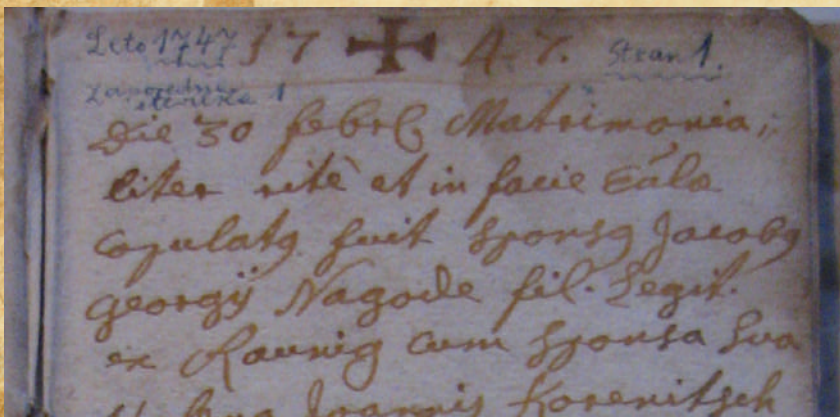 Leto 1747 17 ✠ 47. Stran 1.
Zaporedna
številka 1
Die 30 febr Matrimonia,,
liter ritè et in facie Eäla
copulatg fuit Sponsg Jacobg
Georgÿ Nagode fil. Legit.
ex Raunig cum Sponsa Sua
Joannis Korenitsch